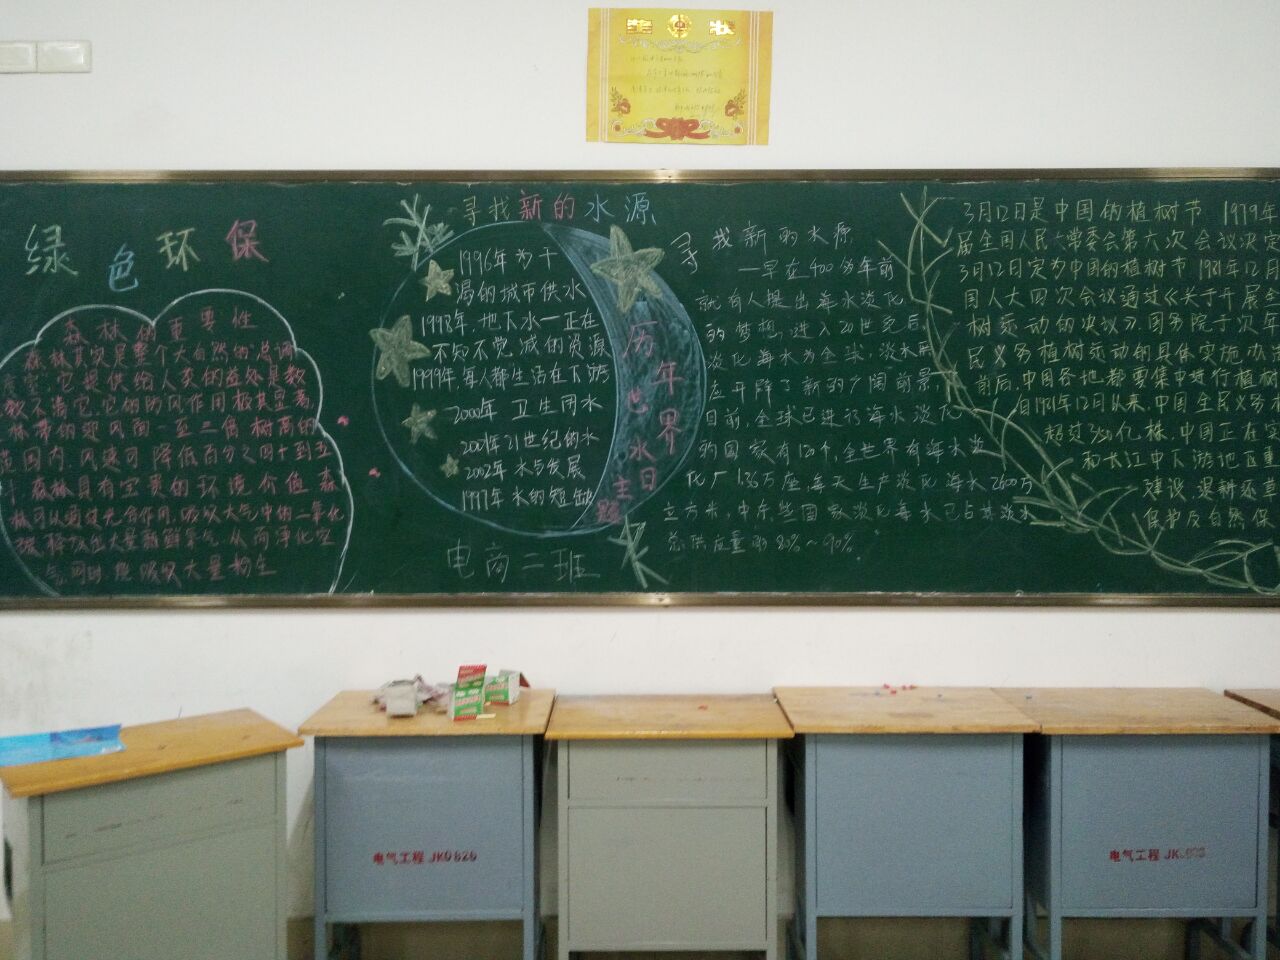 奖状
绿色环保
森林的重要性
森林其实是整个大自然的总调
它提供给人类的益处是数
数不清它.它的防风作用极其显著
林带的迎风面一至三倍树高的
范围内,风速可降低百分之四十到五
森林具有宝贵的环境价值 森
林可以通过光合作用,吸收大气中的二氧化
碳 释放出大量新鲜氧气,从而净化空
气,同时,能吸收大量粉尘
寻找新的水源
1996年为干
渴的城市供水
1998年,地下水一正在
不知不觉减的资源
1999年,每人都生活在下游
2000年 卫生用水
2001年21世纪的水
2002年水与发展
1997年水的短缺
历年世界水日主题
电商二班
寻找新的水源
一早在400多年前
就有人提出海水淡化
的梦想,进入20世纪后,
淡化海水为全球,淡水
在开辟了新的广阔前景,
目前,全球已进行海水淡化
的国家有120个,全世界有海水淡
化厂1.36万座,每天生产淡化海水2600万
立方米,中东些国家淡化海水已占其淡水
总供应量的80%~90%.
3月12日是中国的植树节 1979年
届全国人民大常委会第六次会议决定
3月12日定为中国的植树节 1981年12月
国人大四次会议通过《关于开展全
树运动的决议》,国务院于次年
民义务植树运动的具体实施办法
前后,中国各地都要集中进行植树
自1981年12月以来,中国全民义务植
超过350亿株,中国正在实
和长江中下游地区重
建设,退耕还草
保护及自然保
电气工程 JK0820
电气工程 JK